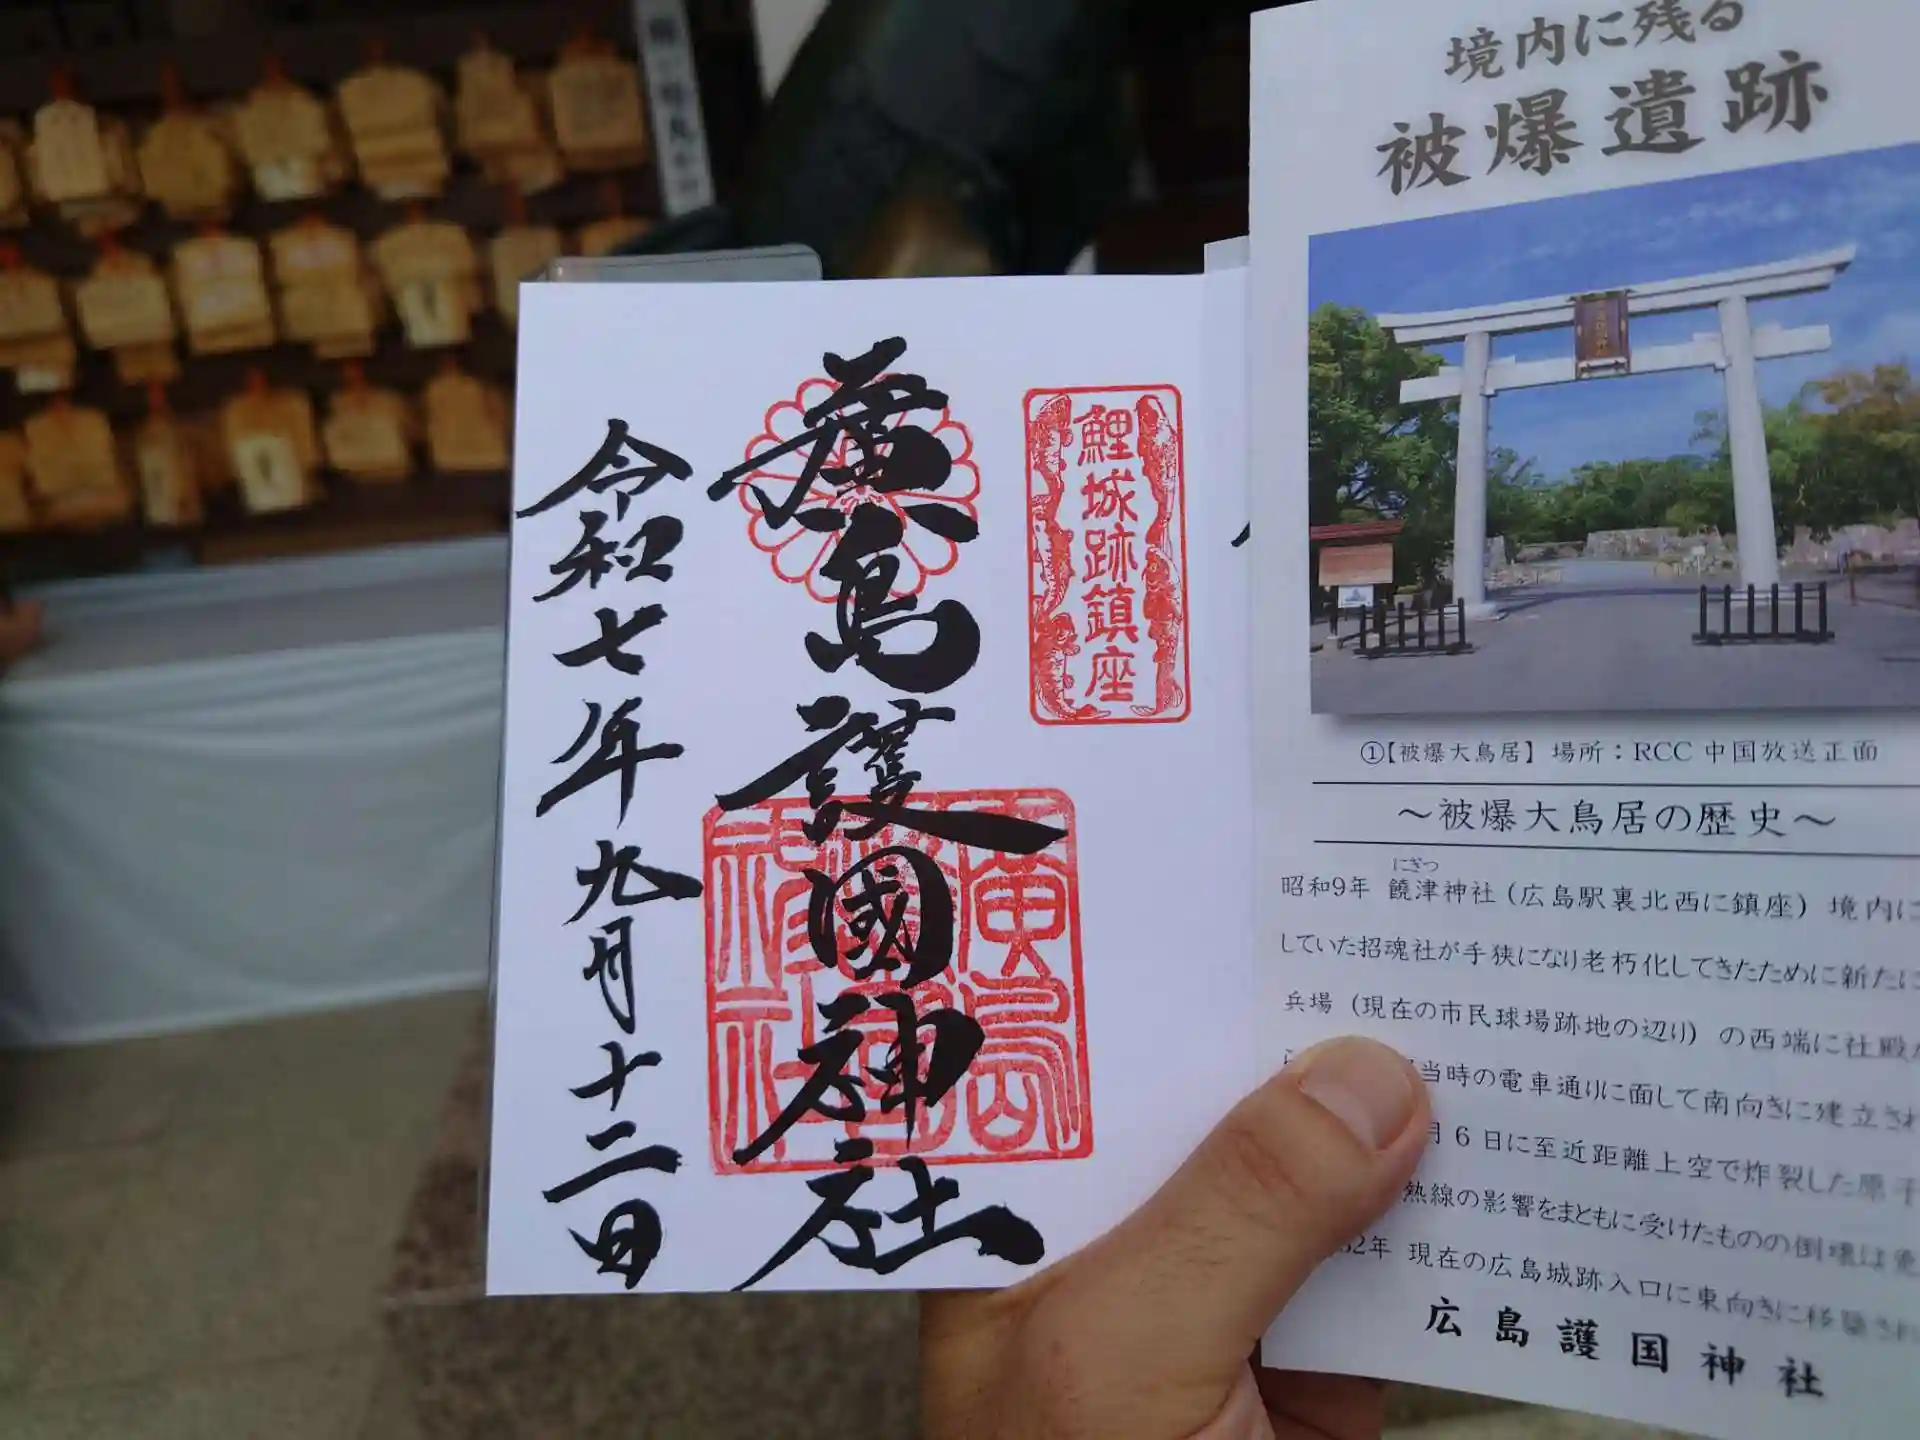 境内に残る
被爆遺跡
①【被爆大鳥居】 場所：RCC 中国放送正面
～被爆大鳥居の歴史～
にぎつ
昭和9年 饒津神社（広島駅裏北西に鎮座）境内に
していた招魂社が手狭になり老朽化してきたために新たに
兵場（現在の市民球場跡地の辺り）の西端に社殿
当時の電車通りに面して南向きに建立され
月6日に至近距離上空で炸裂した原子
熱線の影響をまともに受けたものの倒壊は免
52年 現在の広島城跡入口に東向きに移築され
広島護国神社
鯉城跡鎮座
廣島護國神社
廣島
神社
令和七年九月十二日